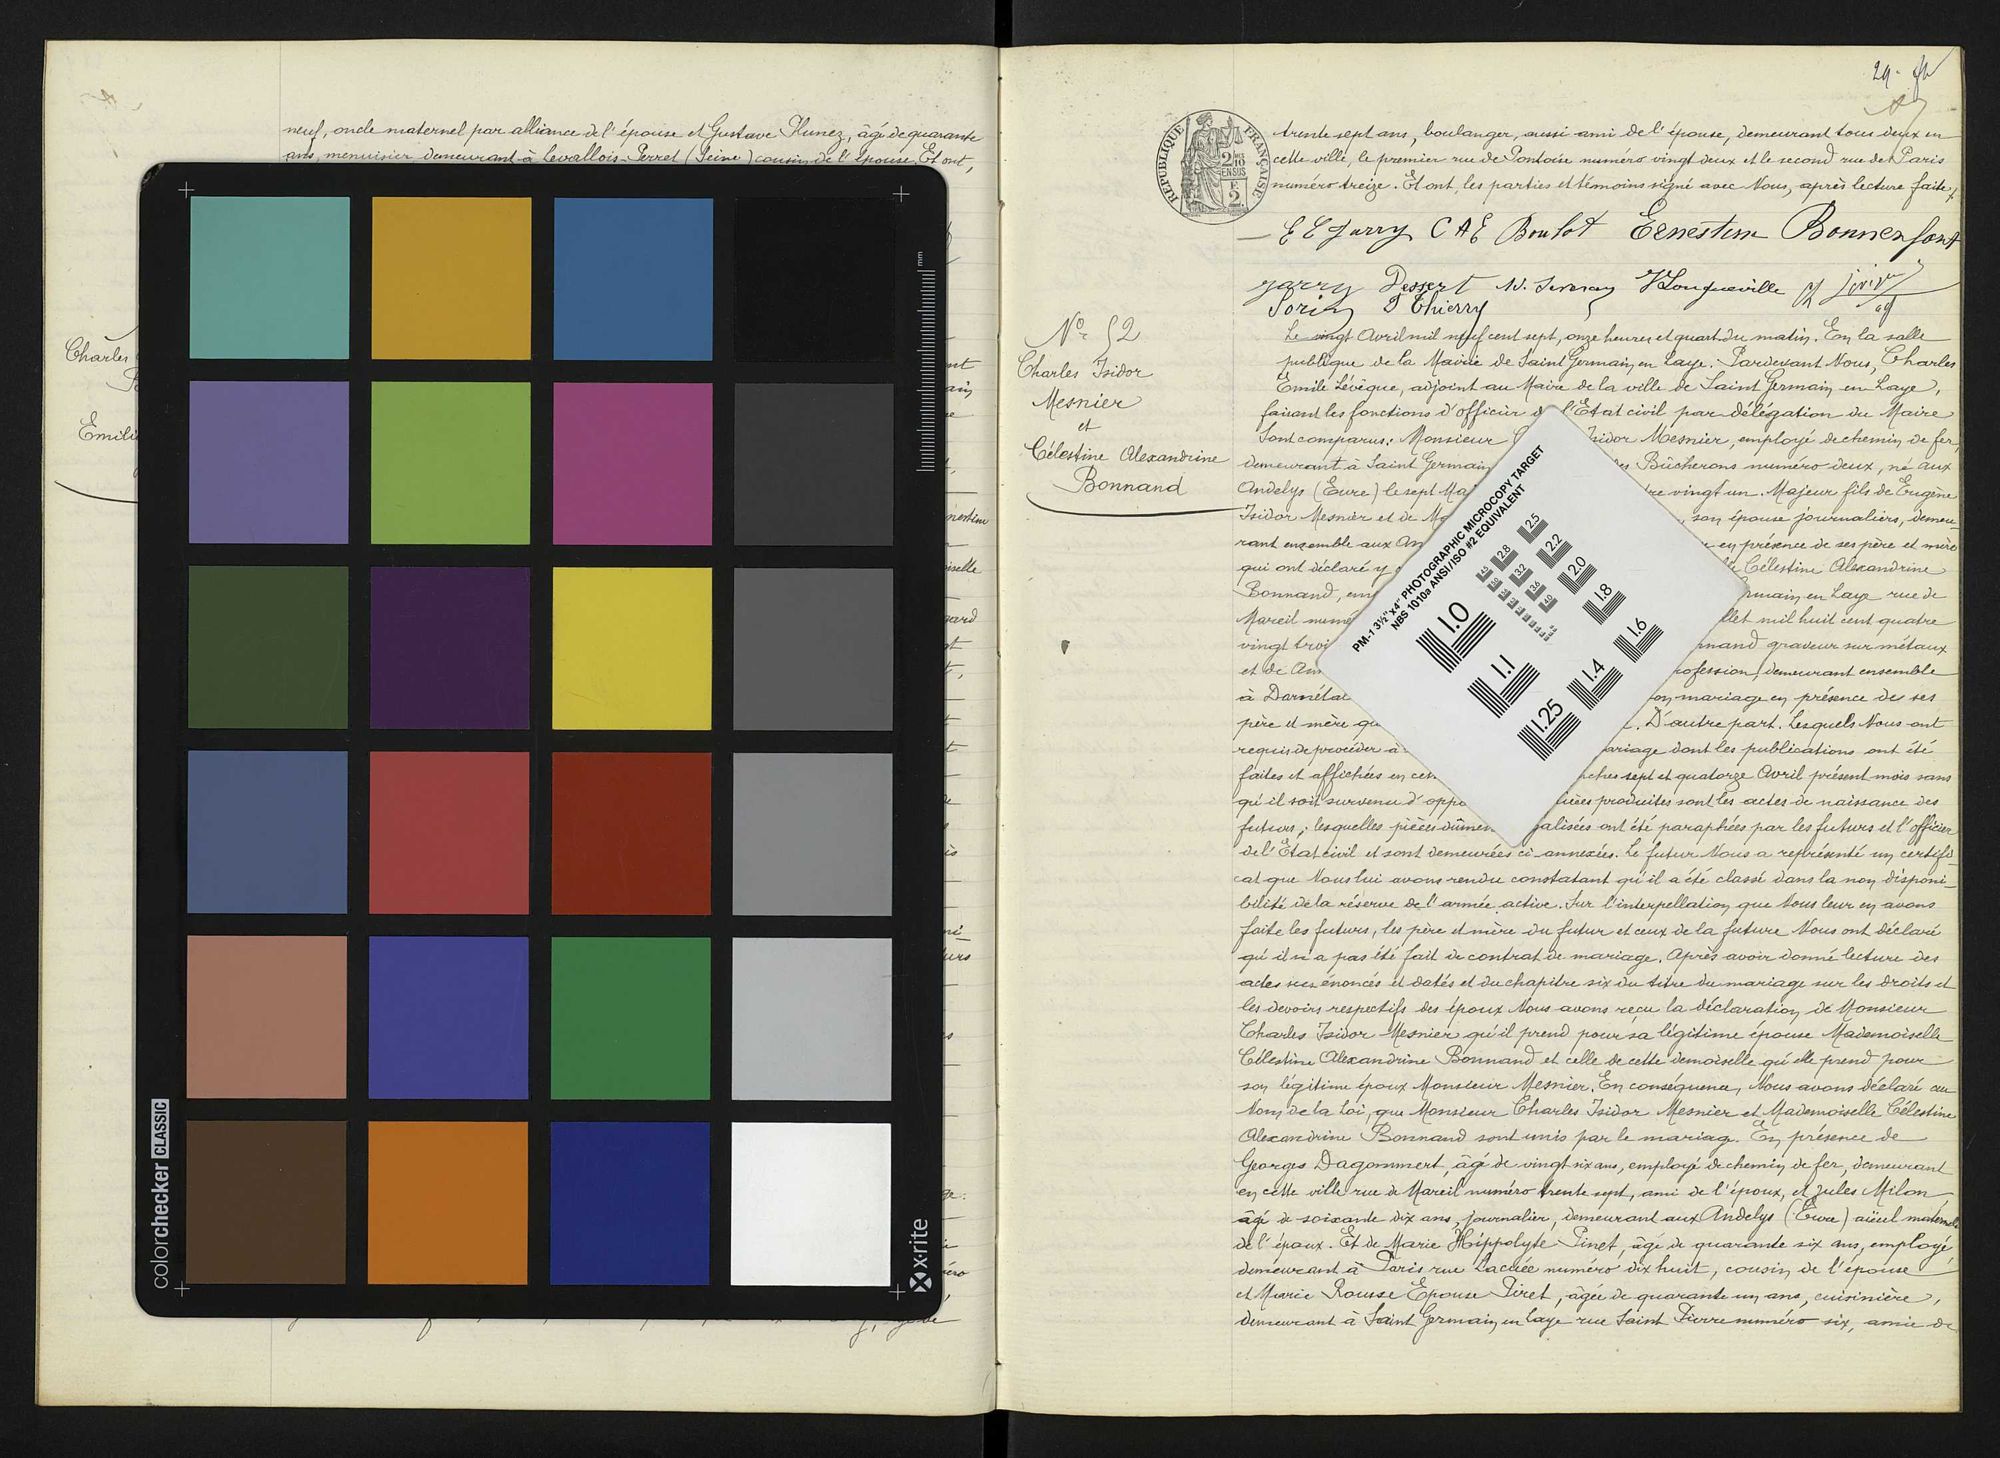 neuf, oncle maternel par alliance de l'épouse et Gustave Kunez, âgé de quarante
ans, menuisier demeurant à Levallois-Perret (Seine) cousin de l'épouse. Et ont,
Charles
Emili
mm
colorchecker CLASSIC
x-rite
29.
RÉPUBLIQUE FRANÇAISE
trente sept ans, boulanger, aussi ami de l'épouse, demeurant tous deux en
cette ville, le premier rue de Pontoise numéro vingt deux et le second rue de Paris
numéro treize. Et ont les parties et témoins signé avec Nous, après lecture faite.
E E Jarry C A E Boulot Ernestine Bonnenfant
Jarry Dessert Longueville
Sorin Thierry
No 52
Charles Isidor
Mesnier
et
Célestine Alexandrine
Bonnand
Le vingt Avril mil neuf cent sept, onze heures et quart du matin. En la salle
publique de la Mairie de Saint Germain en Laye. Pardevant Nous, Charles
Emile Lévêque, adjoint au Maire de la ville de Saint Germain en Laye,
faisant les fonctions d'officier l'Etat civil par délégation du Maire
Sont comparus: Monsieur Isidor Mesnier, employé de chemin de fer,
demeurant à Saint Germain Bûcherons numéro deux, né aux
Andelys (Eure) le sept vingt un. Majeur fils de Eugène
Isidor Mesnier et de son épouse journaliers, demeu-
rant ensemble aux en présence de ses père et mère
qui ont déclaré y Célestine Alexandrine
Bonnand, en Laye rue de
Mareil mil huit cent quatre
vingt graveur sur métaux
et de profession, demeurant ensemble
à Darnétal mariage en présence de ses
père et mère D'autre part. Lesquels Nous ont
requis de procéder à mariage dont les publications ont été
faites et affichées en sept et quatorze Avril présent mois sans
qu'il soit survenu d' produites sont les actes de naissance des
futurs; lesquelles pièces ont été paraphées par les futurs et l'officier
de l'Etat civil et sont demeurées ci annexées. Le futur Nous a représenté un certifi-
cat que Nous lui avons rendu constatant qu'il a été classé dans la non disponi-
bilité de la réserve de l'armée active. Sur l'interpellation que Nous leur en avons
faite les futurs, les père et mère du futur et ceux de la future Nous ont déclaré
qu'il n'a pas été fait de contrat de mariage. Après avoir donné lecture des
actes sus énoncés et datés et du chapitre six du titre du mariage sur les droits et
les devoirs respectifs des époux Nous avons reçu la déclaration de Monsieur
Charles Isidor Mesnier qu'il prend pour sa légitime épouse Mademoiselle
Célestine Alexandrine Bonnand et celle de cette demoiselle qu'elle prend pour
son légitime époux Monsieur Mesnier. En conséquence, Nous avons déclaré au
Nom de la Loi, que Monsieur Charles Isidor Mesnier et Mademoiselle Célestine
Alexandrine Bonnand sont unis par le mariage. En présence de
Georges Dagommert, âgé de vingt six ans, employé de chemin de fer, demeurant
en cette ville rue de Mareil numéro trente sept, ami de l'époux, et Jules Milon
âgé de soixante dix ans, journalier, demeurant aux Andelys (Eure) aïeul maternel
de l'époux. Et de Marie Hippolyte Pinet, âgé de quarante six ans, employé
demeurant à Paris rue numéro dix huit, cousin de l'épouse
et Marie Rousse Epouse Piret, âgée de quarante un ans, cuisinière,
demeurant à Saint Germain en Laye rue Saint Pierre numéro six, amie de
PM-1 3½"x4" PHOTOGRAPHIC MICROCOPY TARGET
NBS 1010a ANSI/ISO #2 EQUIVALENT
1.0
1.1
1.25
1.4
1.6
1.8
2.0
2.2
2.5
2.8
3.2
3.6
4.0